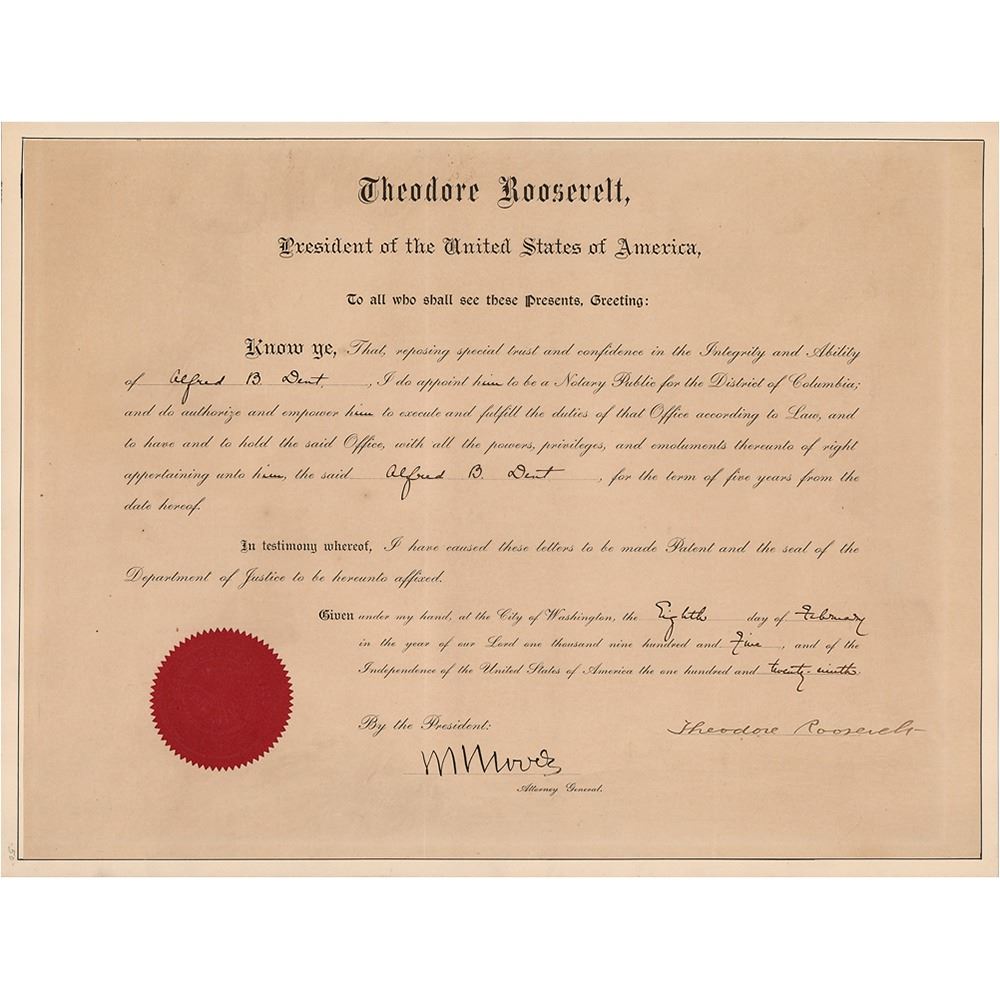 Theodore Roosevelt,
President of the United States of America,
To all who shall see these Presents, Greeting:
Know ye, That, reposing special trust and confidence in the Integrity and Ability
of Alfred B. Dent, I do appoint him to be a Notary Public for the District of Columbia;
and do authorize and empower him to execute and fulfill the duties of that Office according to Law, and
to have and to hold the said Office, with all the powers, privileges, and emoluments thereunto of right
appertaining unto him, the said Alfred B. Dent, for the term of five years from the
date hereof.
In testimony whereof, I have caused these letters to be made Patent and the seal of the
Department of Justice to be hereunto affixed.
Given under my hand, at the City of Washington, the Eighth day of February
in the year of our Lord one thousand nine hundred and Five, and of the
Independence of the United States of America the one hundred and twenty-ninth.
By the President:
Theodore Roosevelt
Attorney General.